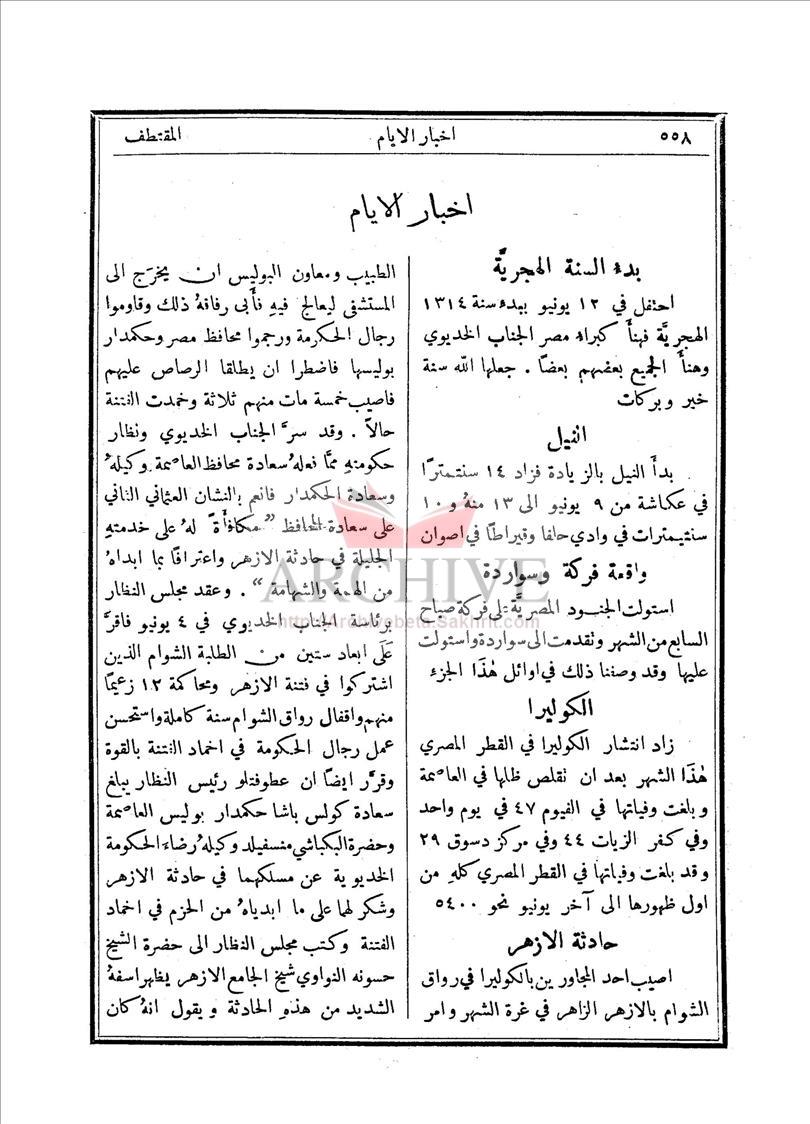 ٥٥٨ اخبار الايام المقتطف
اخبار الايام
بدء السنة الهجريَّة
احتفل في ١٢ يونيو ببدء سنة ١٣١٤
الهجريَّة فهنأ كبراء مصر الجناب الخديوي
وهنأ الجميع بعضهم بعضًا . جعلها الله سنة
خير وبركات
النيل
بدأ النيل بالزيادة فزاد ١٤ سنتمترًا
في عكاشة من ٩ يونيو الى ١٣ منهُ و ١٠
سنتيمترات في وادي حلفا وقيراطًا في اصوان
واقعة فركة وسواردة
استولت الجنود المصريَّة على فركة صباح
السابع من الشهر وتقدمت الى سواردة واستولت
عليها وقد وصفنا ذلك في اوائل هٰذا الجزء
الكوليرا
زاد انتشار الكوليرا في القطر المصري
هٰذا الشهر بعد ان تقلص ظلها في العاصمة
وبلغت وفياتها في الفيوم ٤٧ في يوم واحد
وفي كفر الزيات ٤٤ وفي مركز دسوق ٢٩
وقد بلغت وفياتها في القطر المصري كلهِ من
اول ظهورها الى آخر يونيو نحو ٥٤٠٠
حادثة الازهر
اصيب احد المجاورين بالكوليرا في رواق
الشوام بالازهر الزاهر في غرة الشهر وامر
الطبيب ومعاون البوليس ان يخرَج الى
المستشفى ليعالج فيهِ فأبى رفاقهُ ذلك وقاوموا
رجال الحكومة ورجموا محافظ مصر وحكمدار
بوليسها فاضطرا ان يطلقا الرصاص عليهم
فاصيب خمسة مات منهم ثلاثة وخمدت الفتنة
حالاً . وقد سرَّ الجناب الخديوي ونظار
حكومتهِ ممَّا فعلهُ سعادة محافظ العاصمة ووكيلهُ
وسعادة الحكمدار فانعم بالنشان العثماني الثاني
على سعادة المحافظ "مكافأَةً لهُ على خدمتهِ
الجليلة في حادثة الازهر واعترافًا بما ابداهُ
من الهمة والشهامة" . وعقد مجلس النظار
برئاسة الجناب الخديوي في ٤ يونيو فاقرَّ
عَلَى ابعاد ستين من الطلبة الشوام الذين
اشتركوا في فتنة الازهر ومحاكمة ١٢ زعيمًا
منهم واقفال رواق الشوام سنة كاملة واستحسن
عمل رجال الحكومة في اخماد الفتنة بالقوة
وقرَّر ايضًا ان عطوفتلو رئيس النظار يبلغ
سعادة كولس باشا حكمدار بوليس العاصمة
وحضرة البكباشي منسفيلد وكيلهُ رضاء الحكومة
الخديوية عن مسلكهما في حادثة الازهر
وشكر لهما على ما ابدياهُ من الحزم في اخماد
الفتنة وكتب مجلس النظار الى حضرة الشيخ
حسونه النواوي شيخ الجامع الازهر يظهر اسفهُ
الشديد من هذهِ الحادثة ويقول انهُ كان
ARCHIVE
http://Archivebeta.Sakhrit.com